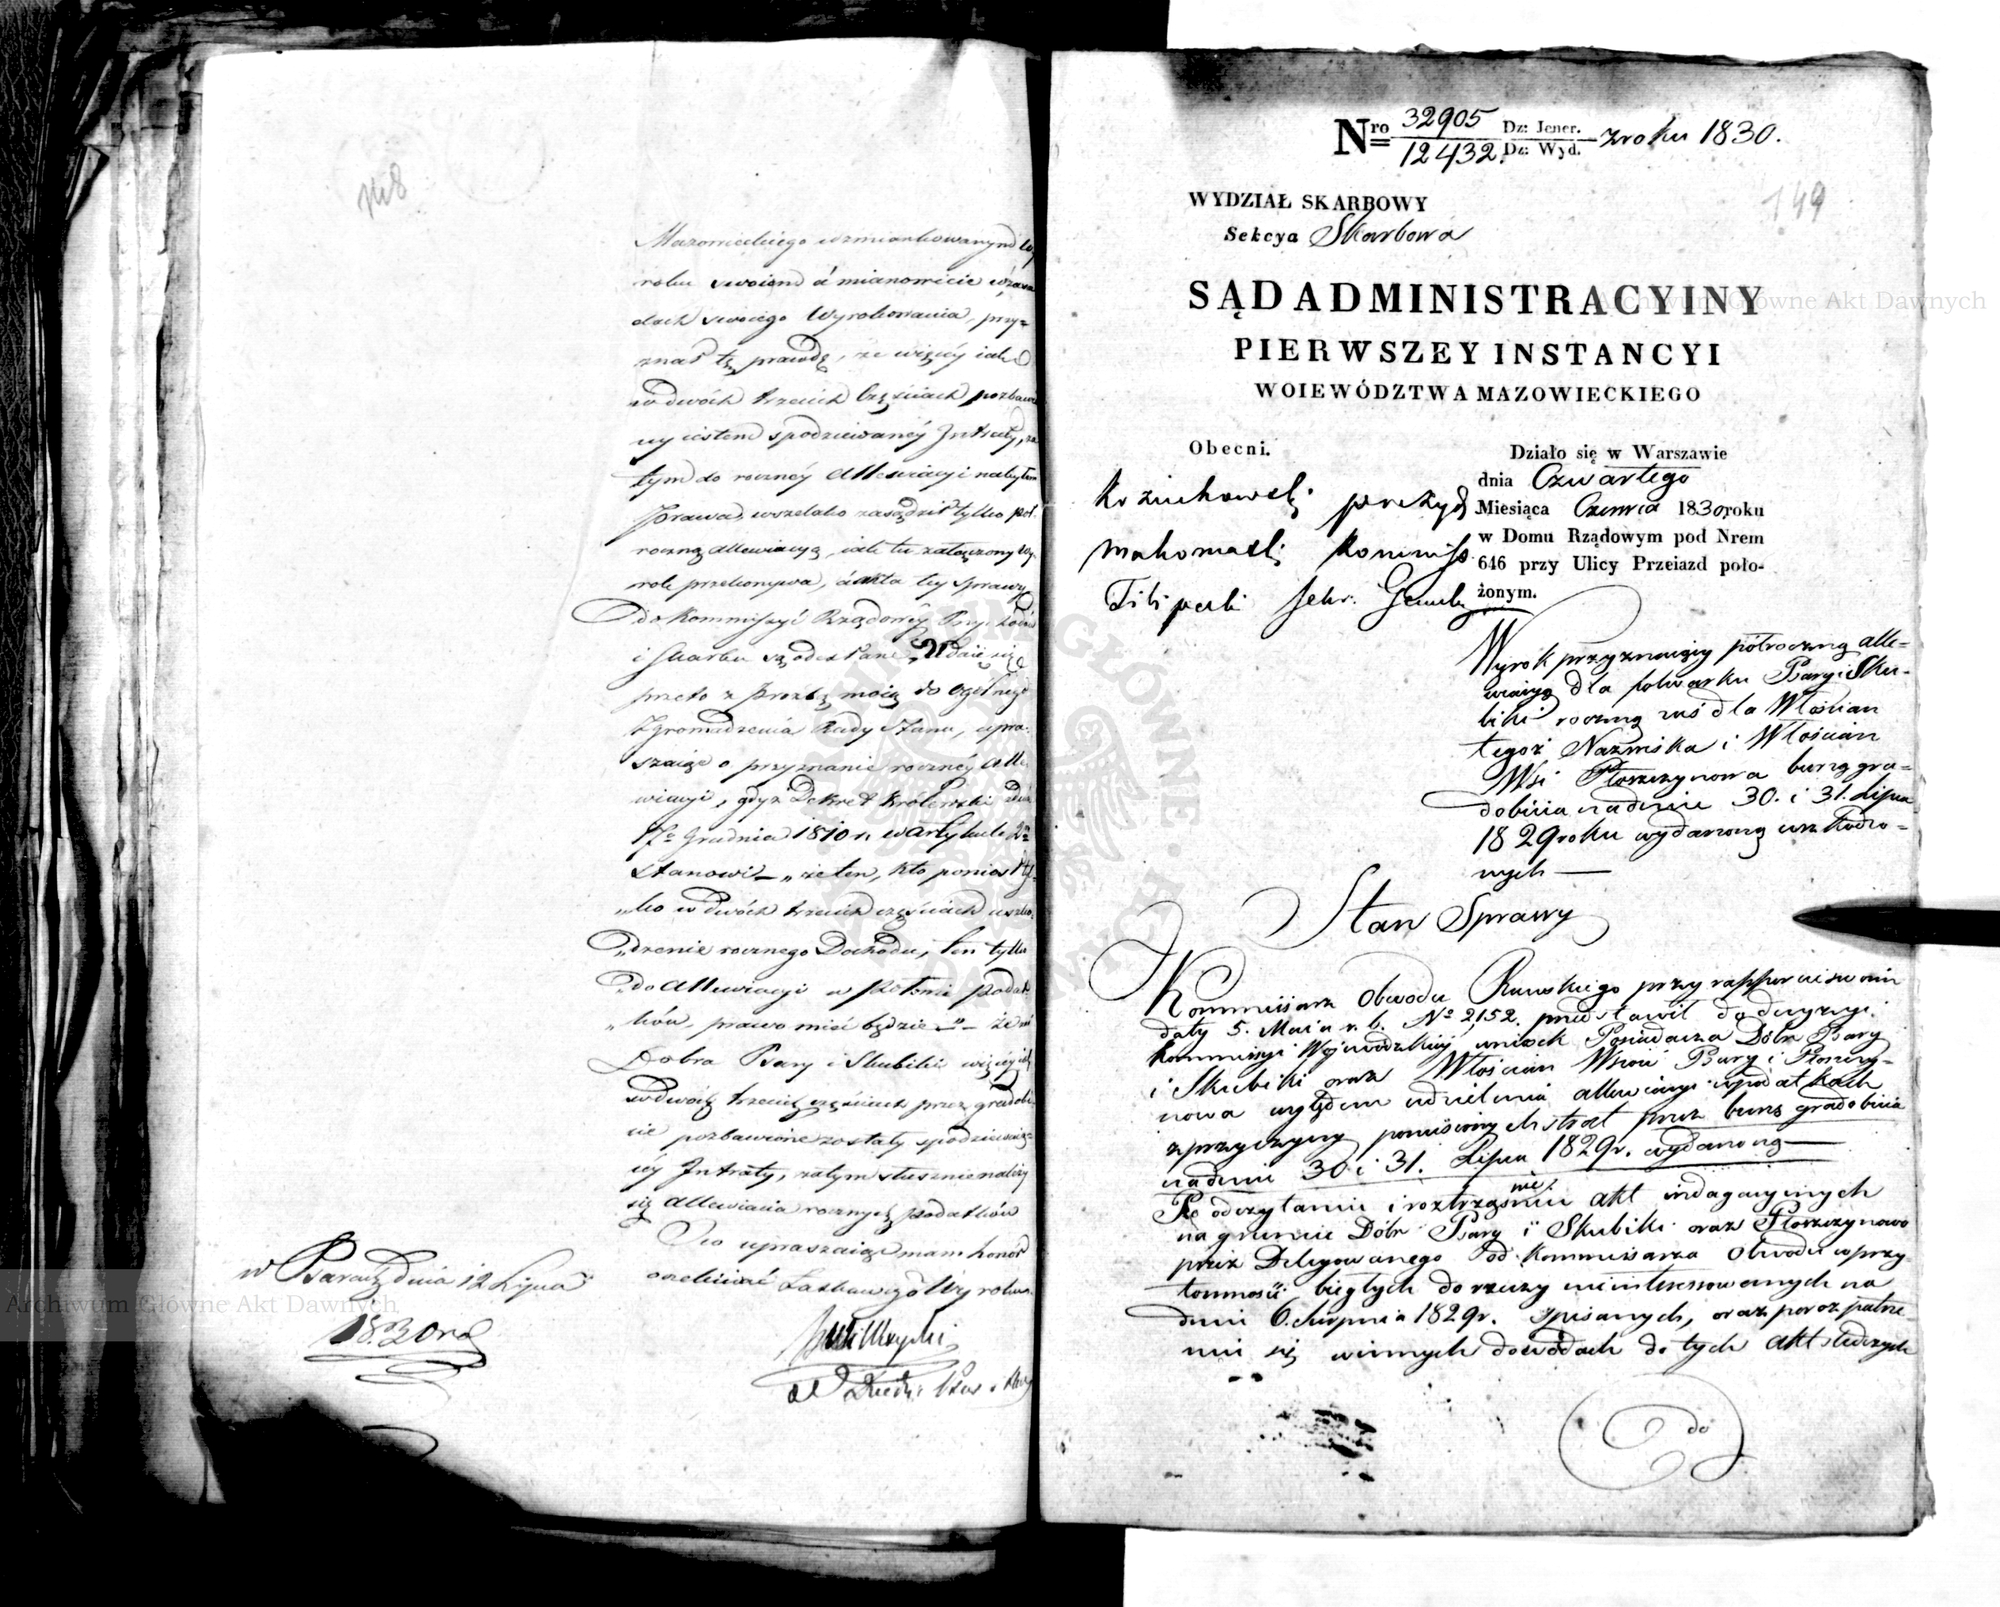 148
Mazowieckiego wzmiankowanym wy
roku swoiem á mianowicie wzasa
dach swoiego Wyrokowania, przy=
znał tę prawdę, że więcéy iak
w dwóch trzecich Częściach pozbawio
ny iestem spodziewanéy Intraty, za
tym do rocznéy allewiacyi nabyłem
Prawa, wszelako zasądził tylko pół
roczną allewiacyą, iak tu załączony wy=
rok przekonywa, á akta téy sprawy
do Kommissyi Rządowéy Przychodów
i Skarbu są odesłane. Udaię się
przeto z prozbą moią do Ogólnego
Zgromadzenia Rady Stanu, upra=
szaiąc o przyznanie rocznéy alle
wiacyi, gdyż Dekret Królewski dnia
Grudnia 1810 r. w artykule
Stanowi — „że ten, kto poniosł tyl=
„ko w dwóch trzecich częściach uszko=
„dzenie rocznego Dochodu, ten tylko
„do allewiacyi w połowie podat=
„ków, prawo mieć będzie" — że zaś
Dobra Psary i Skubiki więcéy iak
w dwóch trzecich częściach przez gradobi
cie pozbawione zostały spodziewaną=
Intraty, zatym słusznie należy
się allewiacia rocznych podatków
O co upraszaiąc mam honor
oczekiwać Łaskawego Wyroku.
w Psarach dnia 12 Lipca
1830 r.
Nro 32905 Dz: Jener. z roku 1830.
12432. Dz: Wyd.
149
WYDZIAŁ SKARBOWY
Sekcya Skarbowa
SĄD ADMINISTRACYINY
PIERWSZEY INSTANCYI
WOIEWÓDZTWA MAZOWIECKIEGO
Obecni.
Kożuchowski prezyd
Makomaski Kommiss
Filipecki Sekr.
Działo się w Warszawie
dnia Czwartego
Miesiąca Czerwca 1830 roku
w Domu Rządowym pod Nrem
646 przy Ulicy Przeiazd poło-
żonym.
Wyrok przyznaiący półroczną alle=
wiacyą dla folwarku Psary i Sku=
biki roczną zaś dla Włościan
tegoż Nazwiska i Włościan
Wsi Płoszczynowa burzą gra=
dobicia na dniu 30. i 31. Lipca
1829 roku wydarzoną uszkodzo=
nych —
Stan Sprawy
Kommissarz Obwodu Rawskiego przy rapporcie swoim
daty 5. Maia r. b. No 2,152. przedstawił do decyzyi
Kommissyi Wojewódzkiéy wniosek Posiadacza Dóbr Psary
i Skubiki oraz Włościan Wsiów Psary i Płoszczy=
nowa względem udzielenia allewiacyi w podatkach
z przyczyny poniesionych strat przez burzę gradobicia
na dniu 30 i 31. Lipca 1829 r. wydarzoną —
Po odczytaniu i roztrząśnieniu akt indagacyinych
na gruncie Dóbr Psary i Skubiki oraz Płoszczynowa
przez Delegowanego od Kommissarza Obwodu w przy
tomności biegłych do rzeczy nieinteressowanych na
dniu 6. Sierpnia 1829 r. spisanych, oraz po rozpatrze
niu się w innych dowodach do tych akt służących
do
Archiwum Główne Akt Dawnych
Archiwum Główne Akt Dawnych